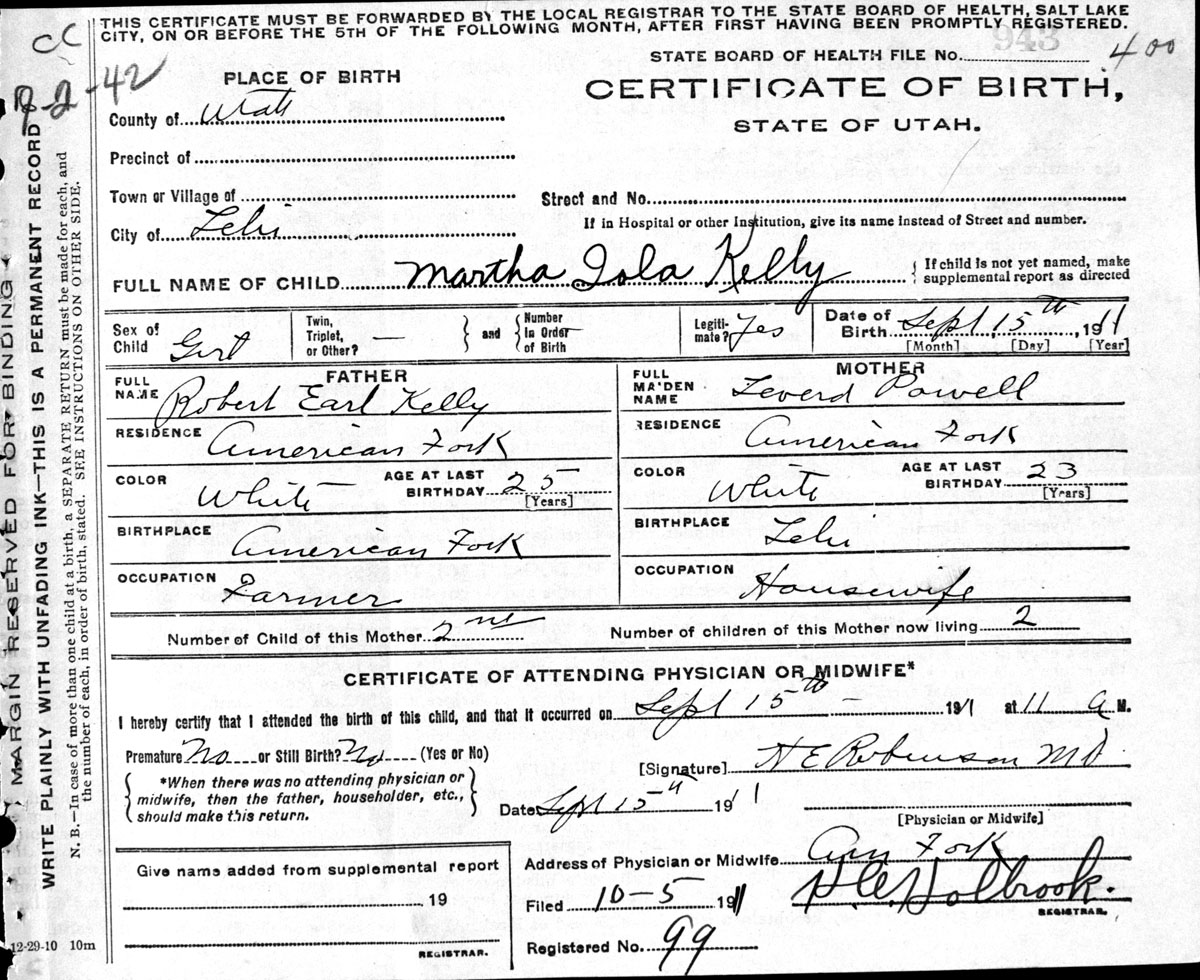 THIS CERTIFICATE MUST BE FORWARDED BY THE LOCAL REGISTRAR TO THE STATE BOARD OF HEALTH, SALT LAKE
CITY, ON OR BEFORE THE 5TH OF THE FOLLOWING MONTH, AFTER FIRST HAVING BEEN PROMPTLY REGISTERED.
CC
943
STATE BOARD OF HEALTH FILE No. 400
9-2-42
PLACE OF BIRTH
CERTIFICATE OF BIRTH,
STATE OF UTAH.
County of Utah
Precinct of
Town or Village of
Street and No.
If in Hospital or other Institution, give its name instead of Street and number.
City of Lehi
FULL NAME OF CHILD Martha Iola Kelly
If child is not yet named, make
supplemental report as directed
Sex of Child Girl
Twin, Triplet, or Other? —
and
Number in Order of Birth —
Legiti-mate? Yes
Date of Birth Sept 15th, 1911
[Month] [Day] [Year]
FATHER
MOTHER
FULL NAME Robert Earl Kelly
FULL MAIDEN NAME Leverd Powell
RESIDENCE American Fork
RESIDENCE American Fork
COLOR White
AGE AT LAST BIRTHDAY 25
[Years]
COLOR White
AGE AT LAST BIRTHDAY 23
[Years]
BIRTHPLACE American Fork
BIRTHPLACE Lehi
OCCUPATION Farmer
OCCUPATION Housewife
Number of Child of this Mother 2nd
Number of children of this Mother now living 2
CERTIFICATE OF ATTENDING PHYSICIAN OR MIDWIFE*
I hereby certify that I attended the birth of this child, and that it occurred on Sept 15th — 1911 at 11 a M.
Premature? No or Still Birth? No (Yes or No)
[Signature] H E Robinson MD
*When there was no attending physician or
midwife, then the father, householder, etc.,
should make this return.
Date Sept 15th 1911
[Physician or Midwife]
Give name added from supplemental report
19
REGISTRAR.
Address of Physician or Midwife Am Fork
Filed 10-5 1911
Holbrook.
REGISTRAR.
Registered No. 99
12-29-10 10m
MARGIN RESERVED FOR BINDING
WRITE PLAINLY WITH UNFADING INK—THIS IS A PERMANENT RECORD
N. B.—In case of more than one child at a birth, a SEPARATE RETURN must be made for each, and
the number of each, in order of birth, stated. SEE INSTRUCTIONS ON OTHER SIDE.